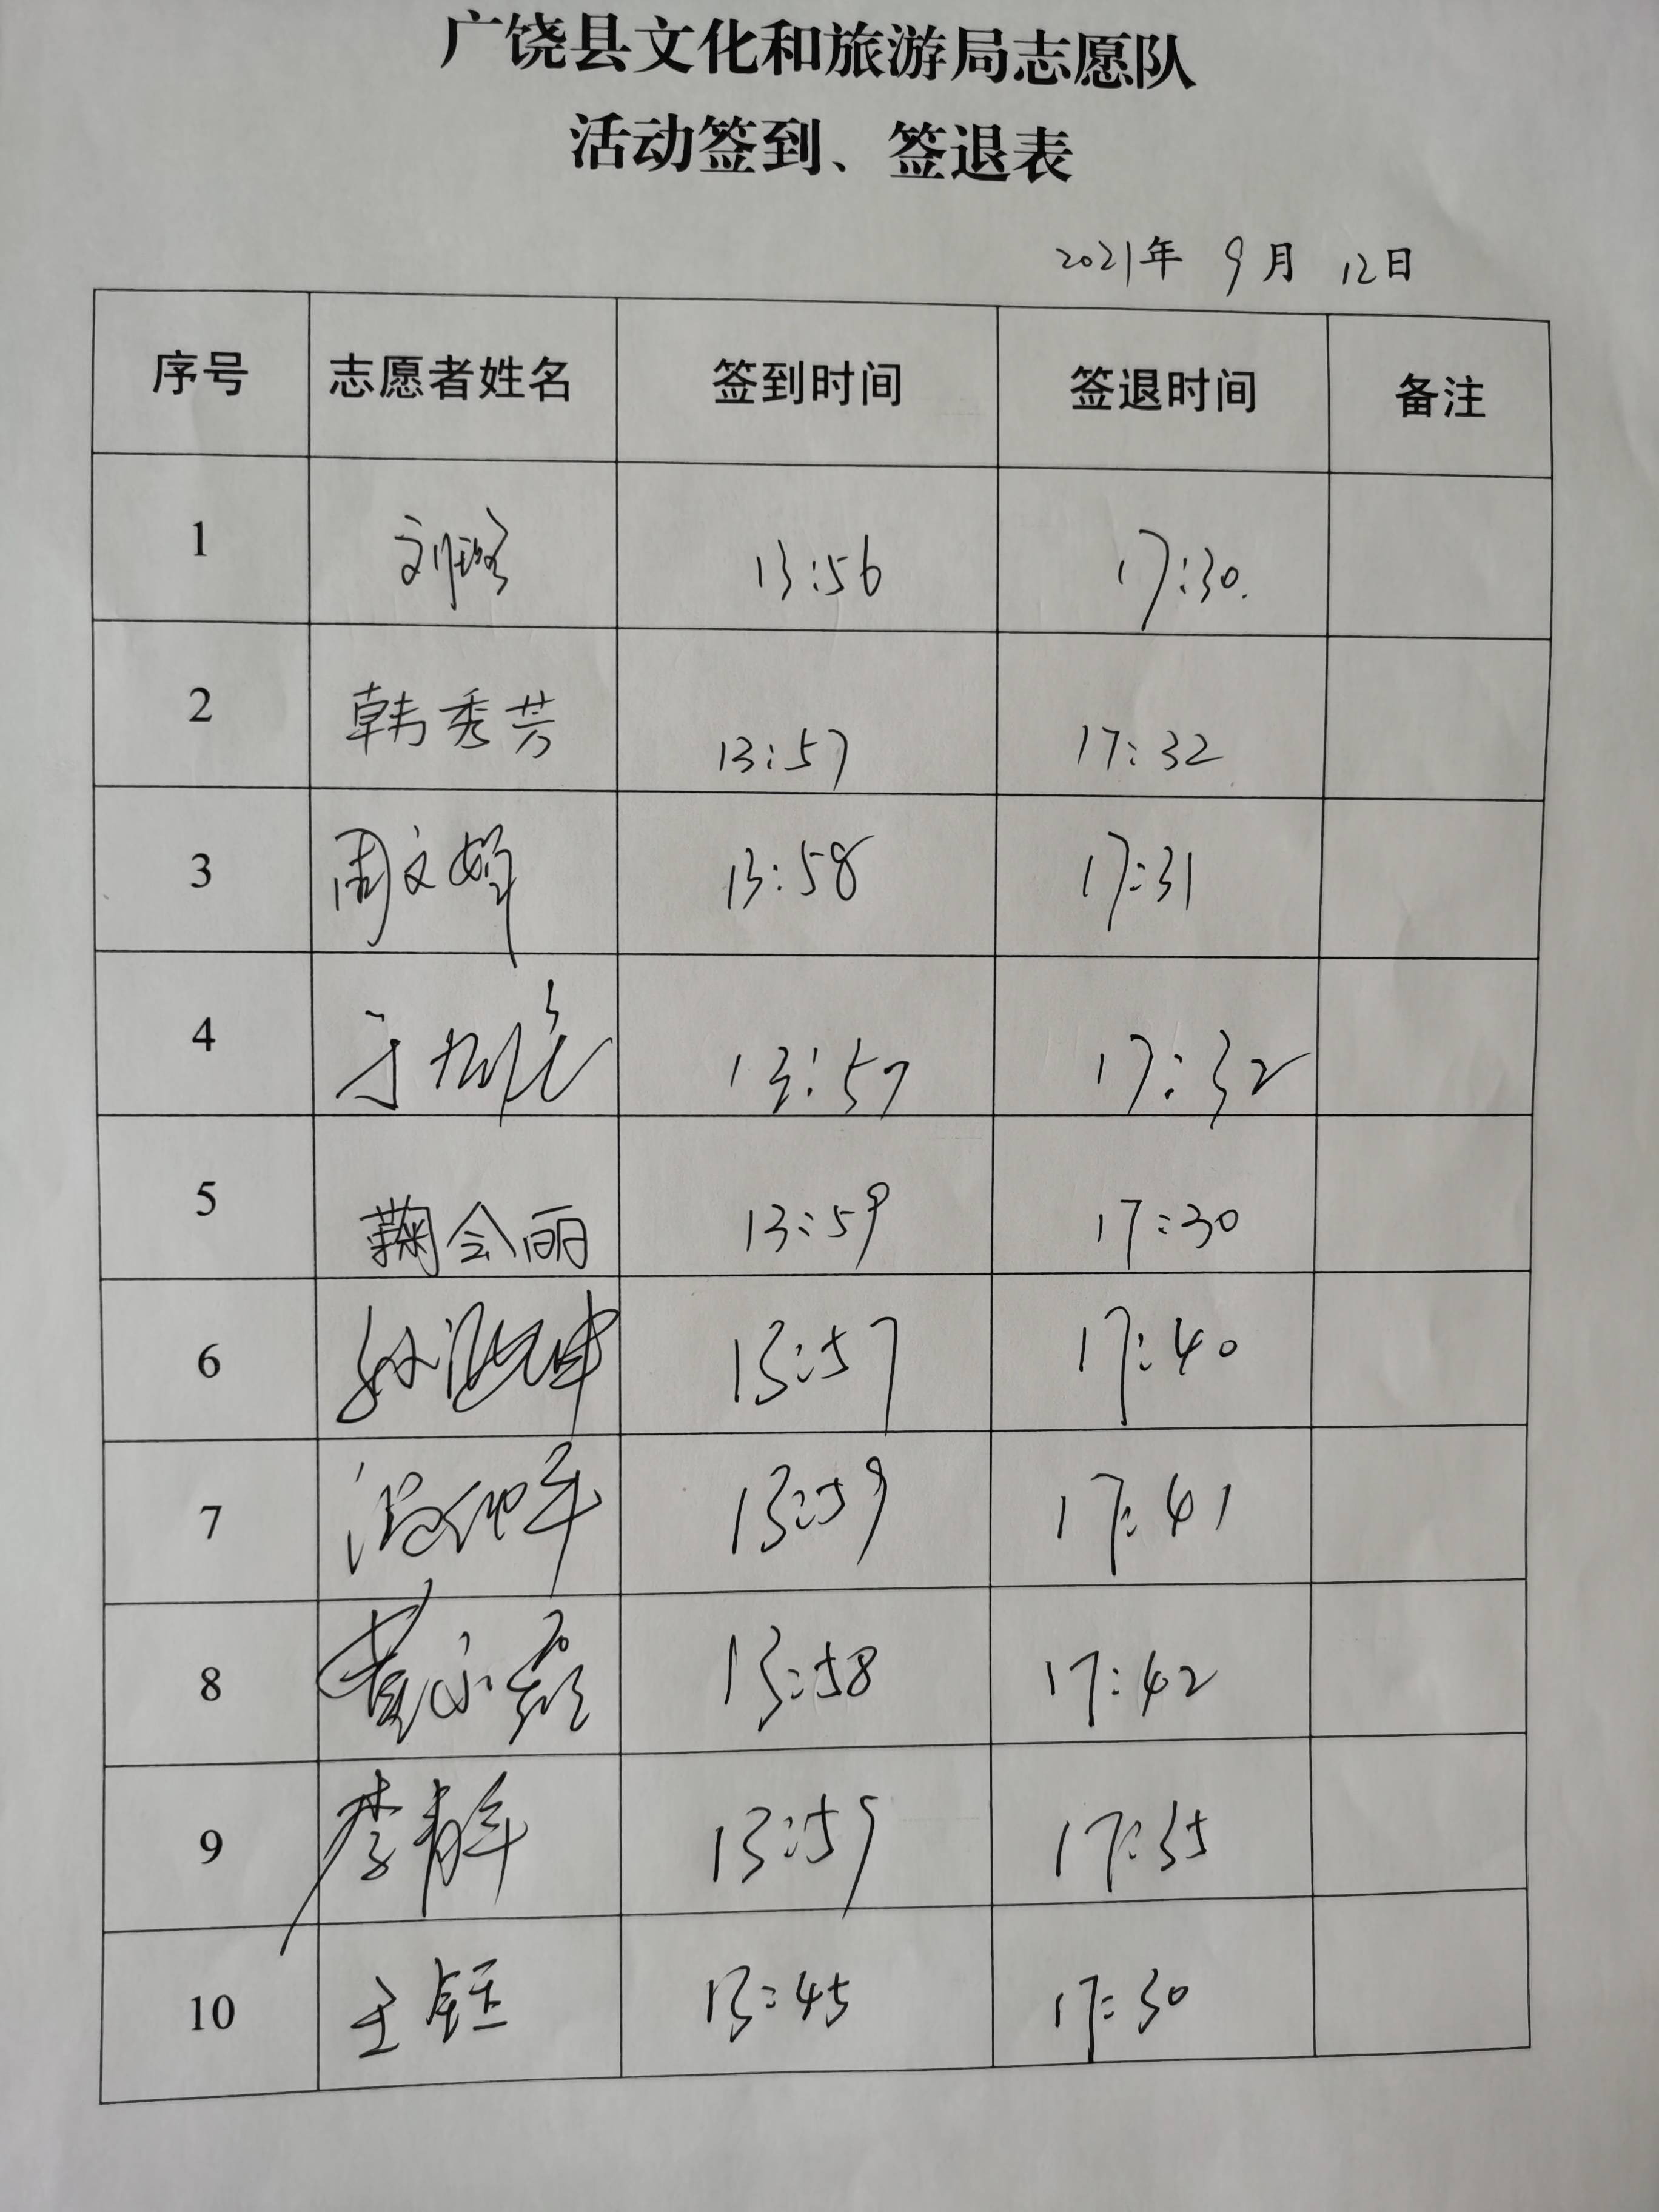 广饶县文化和旅游局志愿队
活动签到、签退表
2021年 9月 12日
序号 志愿者姓名 签到时间 签退时间 备注
1 刘 13:56 17:30.
2 韩秀芳 13:57 17:32
3 周文婷 13:58 17:31
4 于 13:57 17:32
5 鞠会丽 13:59 17:30
6 孙 13:57 17:40
7 13:59 17:41
8 13:58 17:42
9 李青 13:59 17:35
10 王钰 13:45 17:30